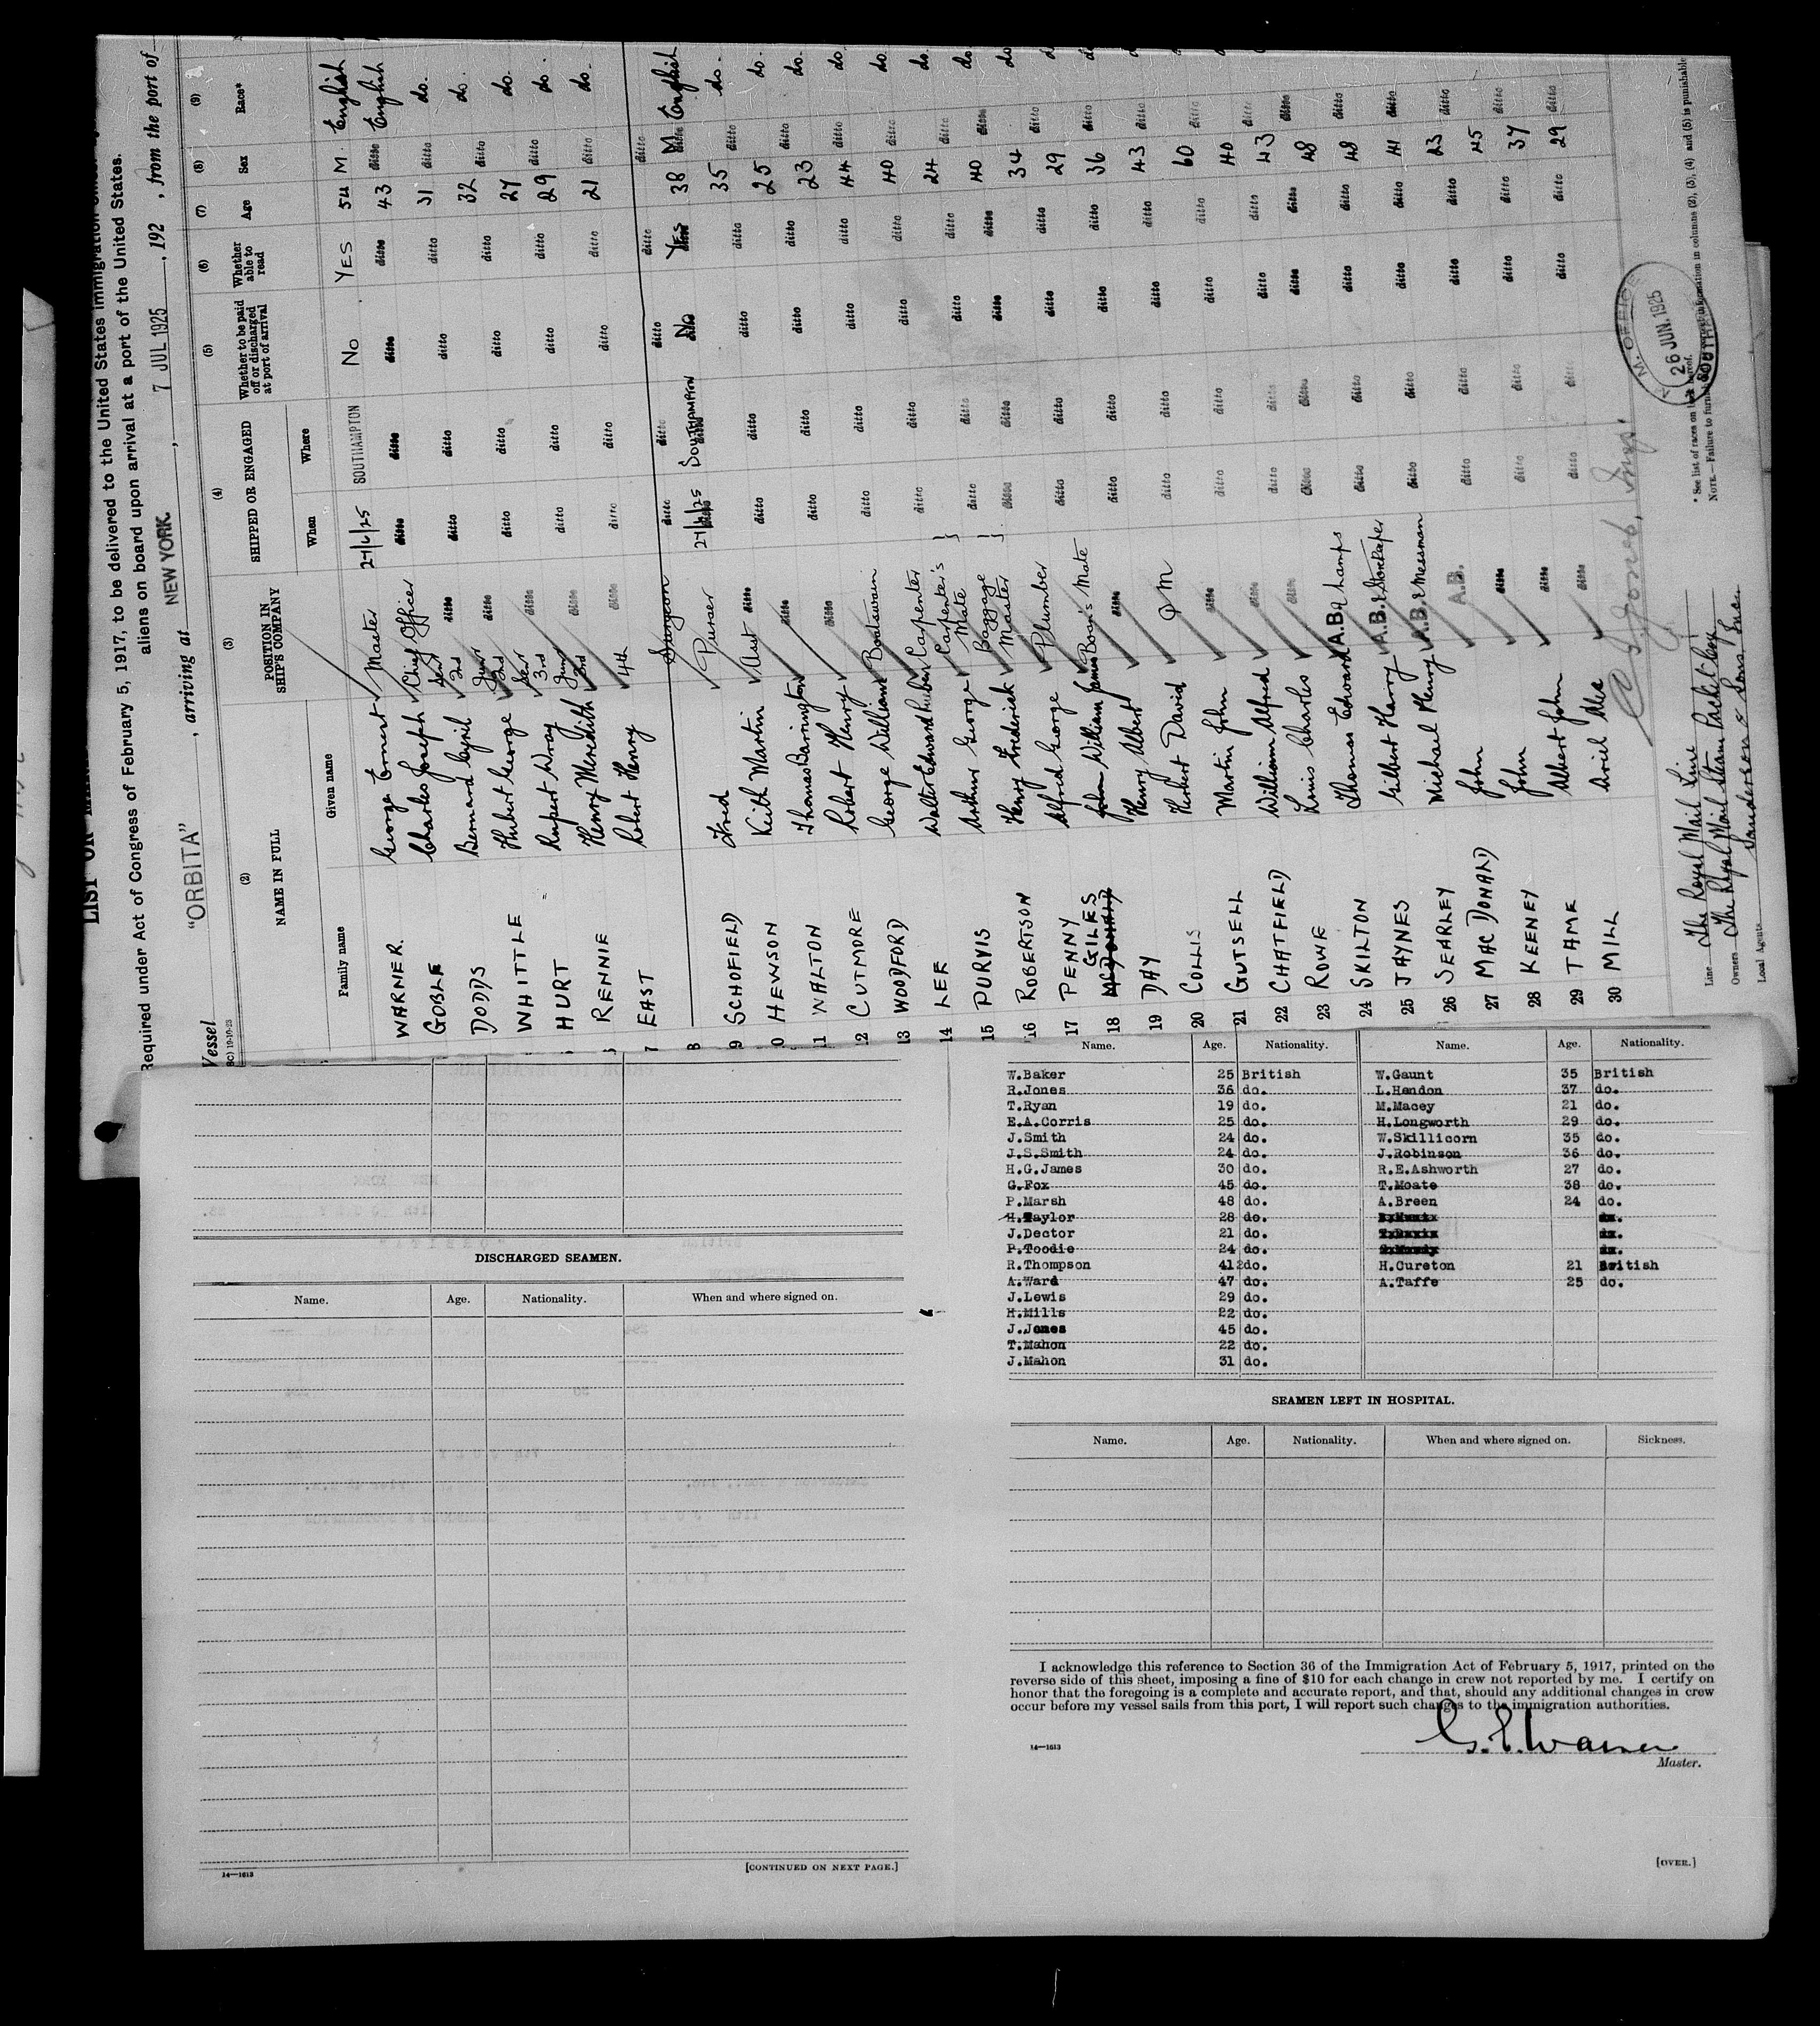 LIST OR
Required under Act of Congress of February 5, 1917, to be delivered to the United States immigration
aliens on board upon arrival at a port of the United States.
Vessel "ORBITA" , arriving at NEW YORK. , 7 JUL 1925 , 192 , from the port of
(2) (3) (4) (5) (6) (7) (8) (9)
NAME IN FULL POSITION IN SHIP'S COMPANY SHIPPED OR ENGAGED Whether to be paid off or discharged at port of arrival Whether able to read Age Sex Race*
Family name Given name When Where
WARNER. George Ernest Master 24/6/25 SOUTHAMPTON No YES 54 M. English
GOBLE Charles Joseph Chief Officer ditto ditto ditto ditto 43 ditto English
DODDS Bernard Cyril Senr 2nd ditto ditto ditto ditto ditto 31 ditto do.
WHITTLE Hubert George Junr 2nd ditto ditto ditto ditto ditto 32 ditto do.
HURT Rupert Wray Senr 3rd ditto ditto ditto ditto ditto 27 ditto do.
RENNIE Henry Meredith Junr 3rd ditto ditto ditto ditto ditto 29 ditto do.
7 EAST Robert Henry 4th ditto 21 do.
8 Surgeon ditto ditto ditto ditto ditto
9 SCHOFIELD Fred Purser 24/6/25 SOUTHAMPTON No YES 38 M English
10 HEWSON Keith Martin Asst ditto ditto ditto ditto ditto 35 ditto do.
11 WALTON Thomas Barrington ditto ditto ditto ditto ditto 25 ditto do.
12 CUTMORE Robert Henry ditto ditto ditto ditto ditto 23 ditto do.
13 WOODFORD George William Boatswain ditto ditto ditto ditto 44 ditto do.
14 LEE Walter Edward Hubert Carpenter ditto ditto ditto ditto 40 ditto do.
15 PURVIS Arthur George Carpenter's Mate ditto ditto ditto ditto 24 ditto do.
16 ROBERTSON Henry Frederick Baggage Master ditto ditto ditto ditto 40 ditto do.
17 PENNY Alfred George Plumber ditto ditto ditto ditto 34 ditto do.
18 GILES William James Bosn's Mate ditto ditto ditto ditto 29 ditto
19 DAY Henry Albert ditto ditto ditto ditto ditto 36 ditto
20 COLLIS Herbert David Q M ditto ditto ditto ditto 43 ditto
21 GUTSELL Martin John ditto ditto ditto ditto ditto 60 ditto
22 CHATFIELD William Alfred ditto ditto ditto ditto ditto 40 ditto
23 ROWE Louis Charles ditto ditto ditto ditto ditto 43 ditto
24 SKILTON Thomas Edward A.B. & Lamps ditto ditto ditto ditto 48 ditto
25 JAYNES Gilbert Harry A.B. & Storekeeper ditto ditto ditto ditto 48 ditto
26 SEARLEY Michael Henry A.B. & Messman ditto ditto ditto ditto 41 ditto
27 MACDONALD John A.B. ditto ditto ditto ditto 23 ditto
28 KEENEY John ditto ditto ditto ditto ditto 45 ditto
29 TAME Albert John ditto ditto ditto ditto ditto 37 ditto
30 MILL ditto 29 ditto
Line The Royal Mail Line
Owners The Royal Mail Steam Packet Coy
Local Agents Sanderson & Sons Inc.
* See list of races on back hereof.
NOTE.—Failure to furnish information in columns (2), (3), (4) and (5) is punishable
M. OFFICE
26 JUN. 1925
SOUTH
Name. Age. Nationality. Name. Age. Nationality.
W.Baker 25 British W.Gaunt 35 British
R.Jones 36 do. L.Handon 37 do.
T.Ryan 19 do. M.Macey 21 do.
E.A.Corris 25 do. H.Longworth 29 do.
J.Smith 24 do. W.Skillicorn 35 do.
J.S.Smith 24 do. J.Robinson 36 do.
H.G.James 30 do. R.E.Ashworth 27 do.
G.Fox 45 do. T.Moate 38 do.
P.Marsh 48 do. A.Breen 24 do.
H.Taylor 28 do.
J.Dector 21 do.
P.Toodie 24 do.
R.Thompson 41 do. H.Cureton 21 British
A.Ward 47 do. A.Taffe 25 do.
J.Lewis 29 do.
H.Mills 22 do.
J.Jones 45 do.
T.Mahon 22 do.
J.Mahon 31 do.
DISCHARGED SEAMEN.
Name. Age. Nationality. When and where signed on.
14—1613
[CONTINUED ON NEXT PAGE.]
SEAMEN LEFT IN HOSPITAL.
Name. Age. Nationality. When and where signed on. Sickness.
I acknowledge this reference to Section 36 of the Immigration Act of February 5, 1917, printed on the
reverse side of this sheet, imposing a fine of $10 for each change in crew not reported by me. I certify on
honor that the foregoing is a complete and accurate report, and that, should any additional changes in crew
occur before my vessel sails from this port, I will report such changes to the immigration authorities.
G. E. Warner
14—1613
Master.
[OVER.]